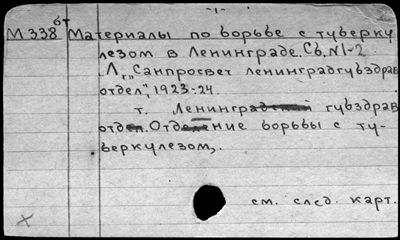 - 1 -
от
М 338 Материалы по борьбе с туберку
лезом в Ленинграде. Сб. № 1-2
Л., "Санпросвет ленинградгубздрав
отдел", 1923-24.
т. Ленинградский губздрав
отдел. Отделение борьбы с ту-
беркулезом,.
см. след. карт.